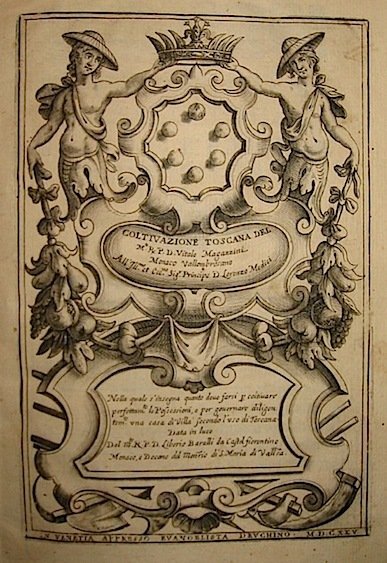 COLTIVAZIONE TOSCANA DEL
M.to R. P. D. Vitale Magazzini
Monaco Vallombrosano
All' Ill. et Ecc. Sig. Principe D. Lorenzo Medici
Nella quale s'insegna quanto deve farsi p coltivare
perfettam. le Possessioni, e per governare diligen
tem. vna casa di Villa secondo l'vso di Toscana
Data in luce
Dal M. R. P. D. Liberio Baralli da Castel fiorentino
Monaco, e Decano del Mon.rio di S. Maria di
IN VENETIA APPRESSO EVANGELISTA DEVCHINO. M.D.C.XXV.